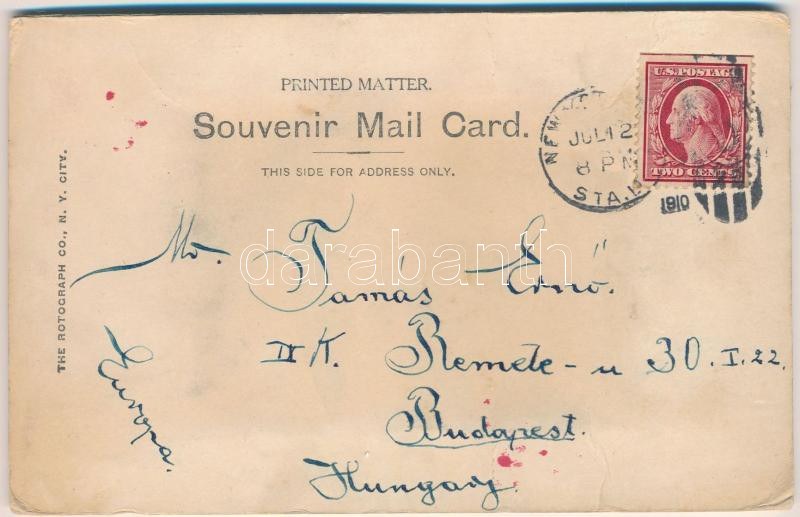 PRINTED MATTER.
Souvenir Mail Card.
THIS SIDE FOR ADDRESS ONLY.
THE ROTOGRAPH CO., N. Y. CITY.
U.S. POSTAGE
TWO CENTS
NEW YORK
JUL 12
8 PM
STA.
1910
darabanth
Mr. Tamás Ernő.
III K. Remete-u 30. I. 22.
Budapest.
Hungary.
Europa.